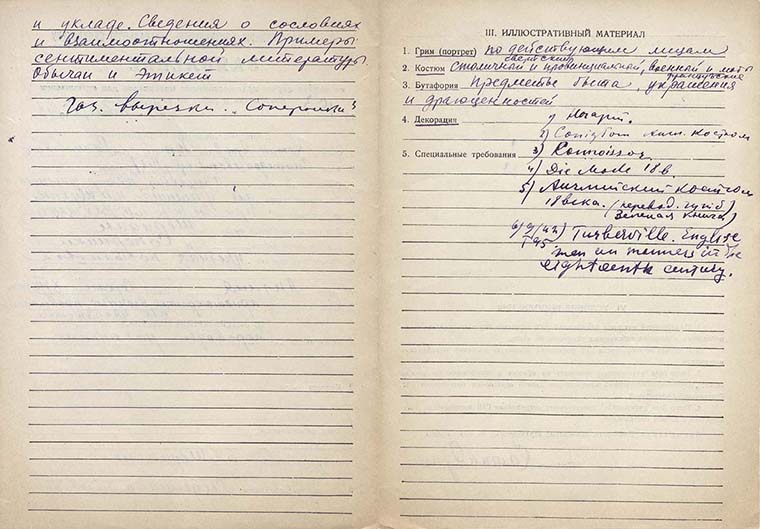 и укладе. Сведения о сословиях
и взаимоотношениях. Примеры
сентиментальной литературы
Обычаи и этикет
Газ. вырезки. Соперники
III. ИЛЛЮСТРАТИВНЫЙ МАТЕРИАЛ
1. Грим (портрет) по действующим лицам
2. Костюм столичной и провинциальной, военной и
3. Бутафория Предметы быта, украшения
и драгоценностей
4. Декорация 1) Хогарт.
2) Англ. Костюм
5. Специальные требования 3) Connoisseur
4) Die Mode 18 в.
5) Английский костюм
18 века. (перевод.
Зеленая книга)
6) Turberville. English
men in manners in the
eighteenth century.